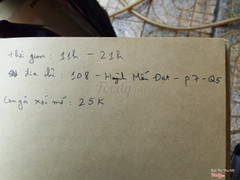 thời gian : 11h - 21h
địa chỉ : 108 - Huỳnh Mẫn Đạt - p7 - Q5
Cơm gà xối mỡ : 25K
Foody